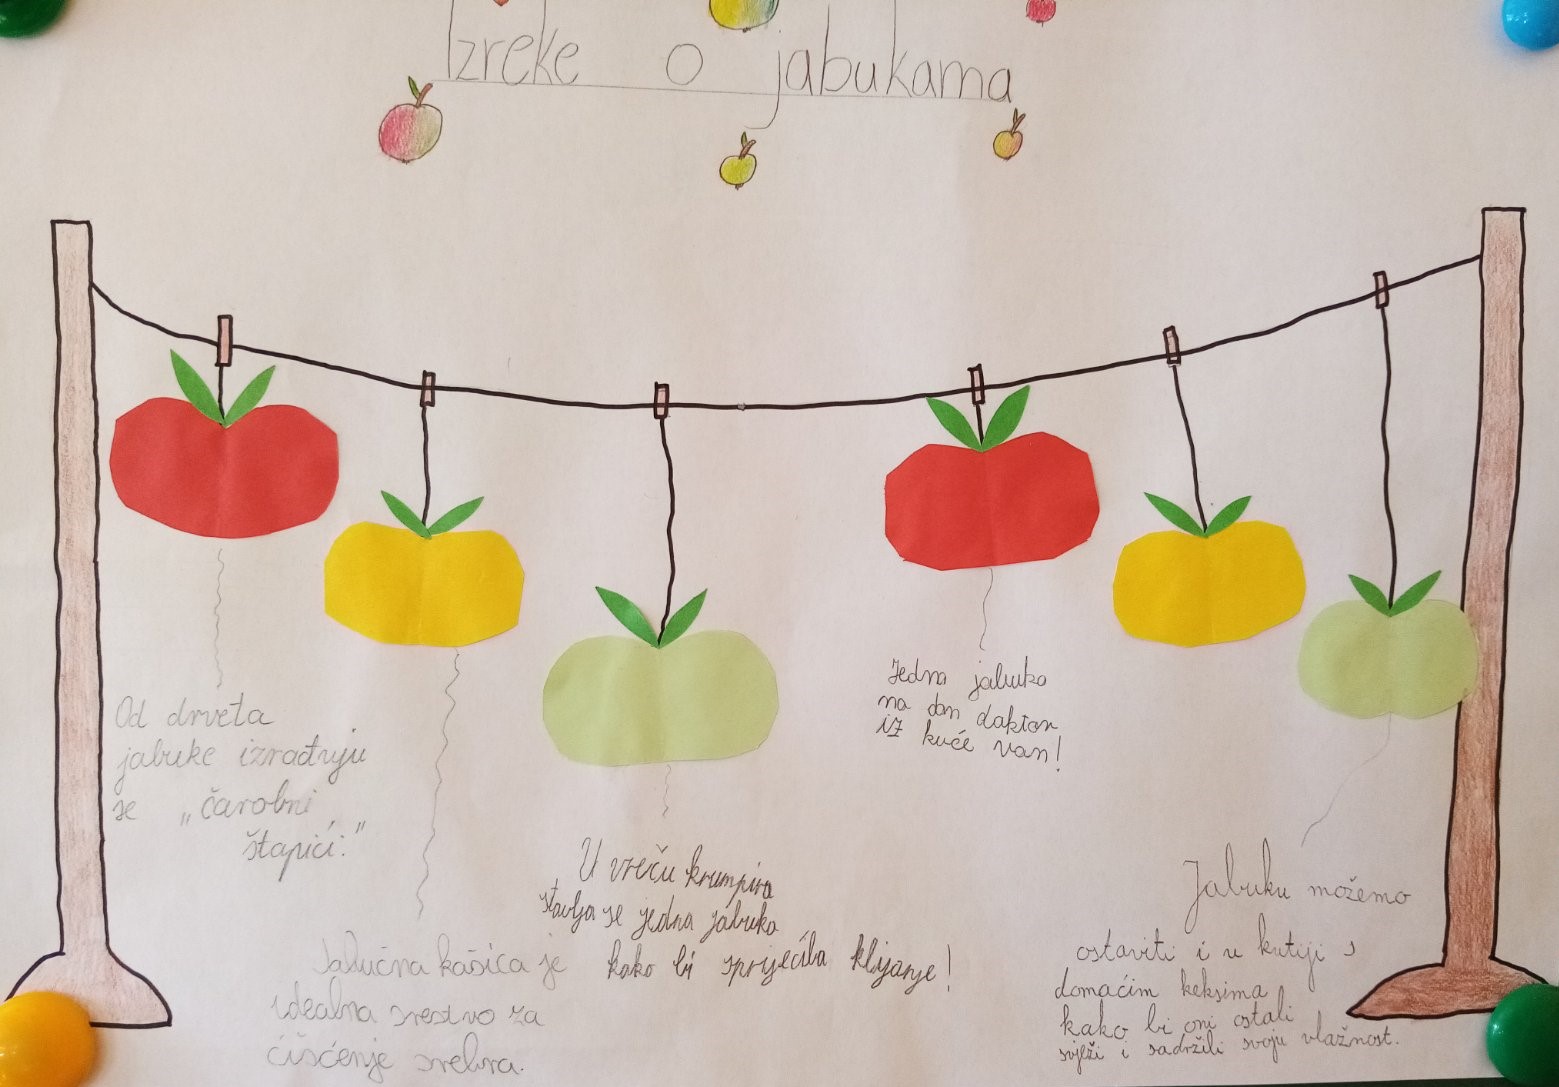 Izreke o jabukama
Od drveta
jabuke izrađuju
se „čarobni
štapići."
Jabučna kašica je
idealna srestvo za
čišćenje srebra.
U vreću krumpira
stavlja se jedna jabuka
kako bi spriječila klijanje!
Jedna jabuka
na dan doktor
iz kuće van!
Jabuku možemo
ostaviti i u kutiji s
domaćim keksima
kako bi oni ostali
svježi i sadržili svoju vlažnost.